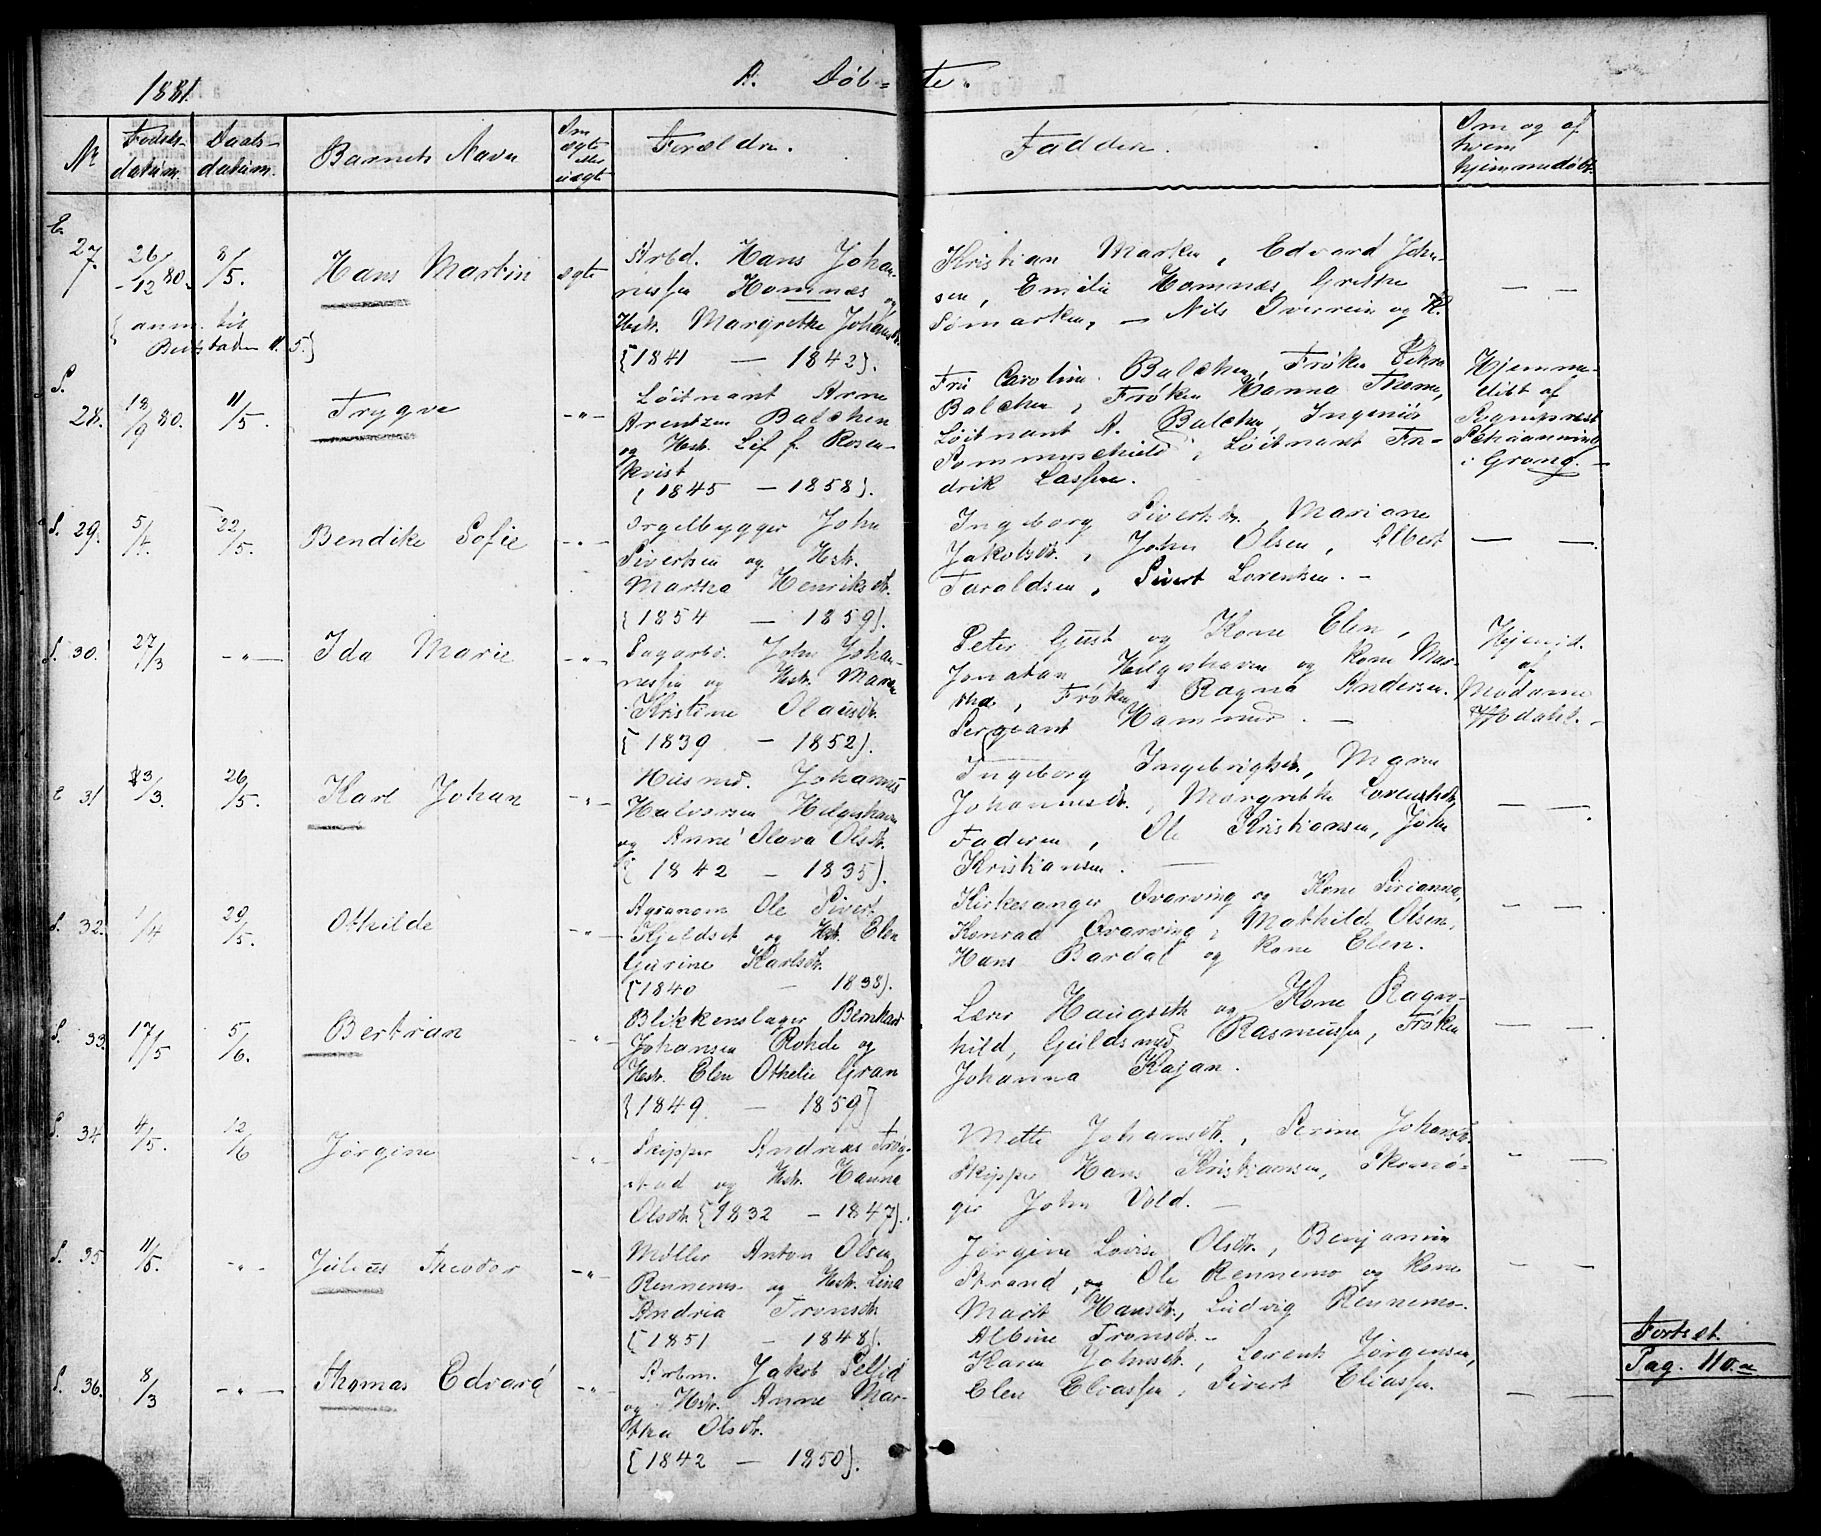 1881.
A. Døb= te.
Nr
Fødsels-
datum.
Daabs-
datum.
Barnets Navn
Om
ægte
eller
uægte
Forældre.
Faddere.
Om og af
hvem
hjemmedøbt.
E.
27.
26/12 80.
8/5.
Hans Martin
ægte
Arbd. Hans Johan-
nessen Homnæs og
Hstr. Margrethe Johansdt.
{1841 — 1842}.
{anm. til
Beitstaden 11. 5.}
Kristian Marken, Edvard John-
sen, Emilie Homnæs, Grethe
Sømarken, — Nils Overrein og K.
— —
S.
28.
18/9 80.
11/5.
Trygve
-"-
Løitnant Arne
Arentzen Balchen
og Hstr. Lif f. Rosen-
kvist
{1845 — 1858}.
Fru Caroline Balchen, Frøken
Balchen, Frøken Hanna Thome,
Løitnant A. Balchen, Ingeniør
Sommerschield, Løitnant Fre-
drik Lassen.
Hjemme-
døbt af
Sognepræst
Schaanning
i Grong. —
S. 29.
5/4.
22/5.
Bendike Sofie
-"-
Orgelbygger John
Sivertsen og Hstr.
Martha Henriksdt.
{1854 — 1859}.
Ingeborg Sivertsdt., Mariane
Jakobsdt., John Olsen, Albert
Taraldsen, Sivert Lorentsen. -
— —
S. 30.
27/3
-"-
Ida Marie
-"-
Sagarbd. John Johan-
nessen og Hstr. Maren
Kristine Olausdt.
{1839 — 1852}.
Peter Gust og Kone Elen,
Jonatan Helgeshaven og Kone Mar-
tha, Frøken Ragna Andersen.
Sergeant Hammer. —
Hjemd.
af
Madame
Hodahl. -
E 31
13/3.
26/5.
Karl Johan
-"-
Husmd. Johannes
Halvorsen Helgeshaven
og Anne Olava Olsdt.
{1842 — 1835}.
Ingeborg Ingebrigtsdt., Maren
Johannesdt., Margrethe Lorentsdt.,
Faderen, Ole Kristiansen, John
Kristiansen. —
— —
S. 32.
1/4
29/5.
Othilde
-"-
Agronom Ole Sivert.
Kjeldset og Hstr. Elen
Gurine Karlsdt.
{1840 — 1838}.
Kirkesanger Qvarving og Kone Sirianna,
Konrad Qvarving, Mathilde Olsen,
Hans Bardal og Kone Elen.
— —
S. 33.
17/5
5/6.
Bertran
-"-
Blikkenslager Bernhard
Johansen Rohde og
Hstr. Elen Othelie Gran
{1849 — 1859}
Lærer Haugseth og Kone Ragn-
hild, Guldsmed Rasmussen, Frøken
Johanna Kajan.
— —
S. 34
4/5.
12/6
Jørgine
-"-
Skipper Andreas Trøg-
stad og Hstr. Hanna
Olsdt. {1832 — 1847}.
Mette Johansdt., Serine Johansdt.
Skipper Hans Kristiansen,
John Vold. —
— —
S. 35
11/5.
-"-
Julius Theodor
-"-
Møller Anton Olsen
Rennemo og Hstr. Lina
Andrea Tronsdt.
{1851 — 1848}.
Jørgine Lovise Olsdt., Benjamin
Strand, og Ole Rennemo og Kone
Marit Hansdt., Ludvig Rennemo.
Albine Tronsdt. -
— —
S. 36.
8/3
-"-
Thomas Edvard
-"-
Arbm. Jakob Sellid
og Hstr. Anne Mar-
tha Olsdt.
{1842 — 1850}.
Karen Johnsdt., Lorents Jørgensen,
Elen Eliassen, Sivert Eliassen.
— —
Fortset.
Pag. 110.a